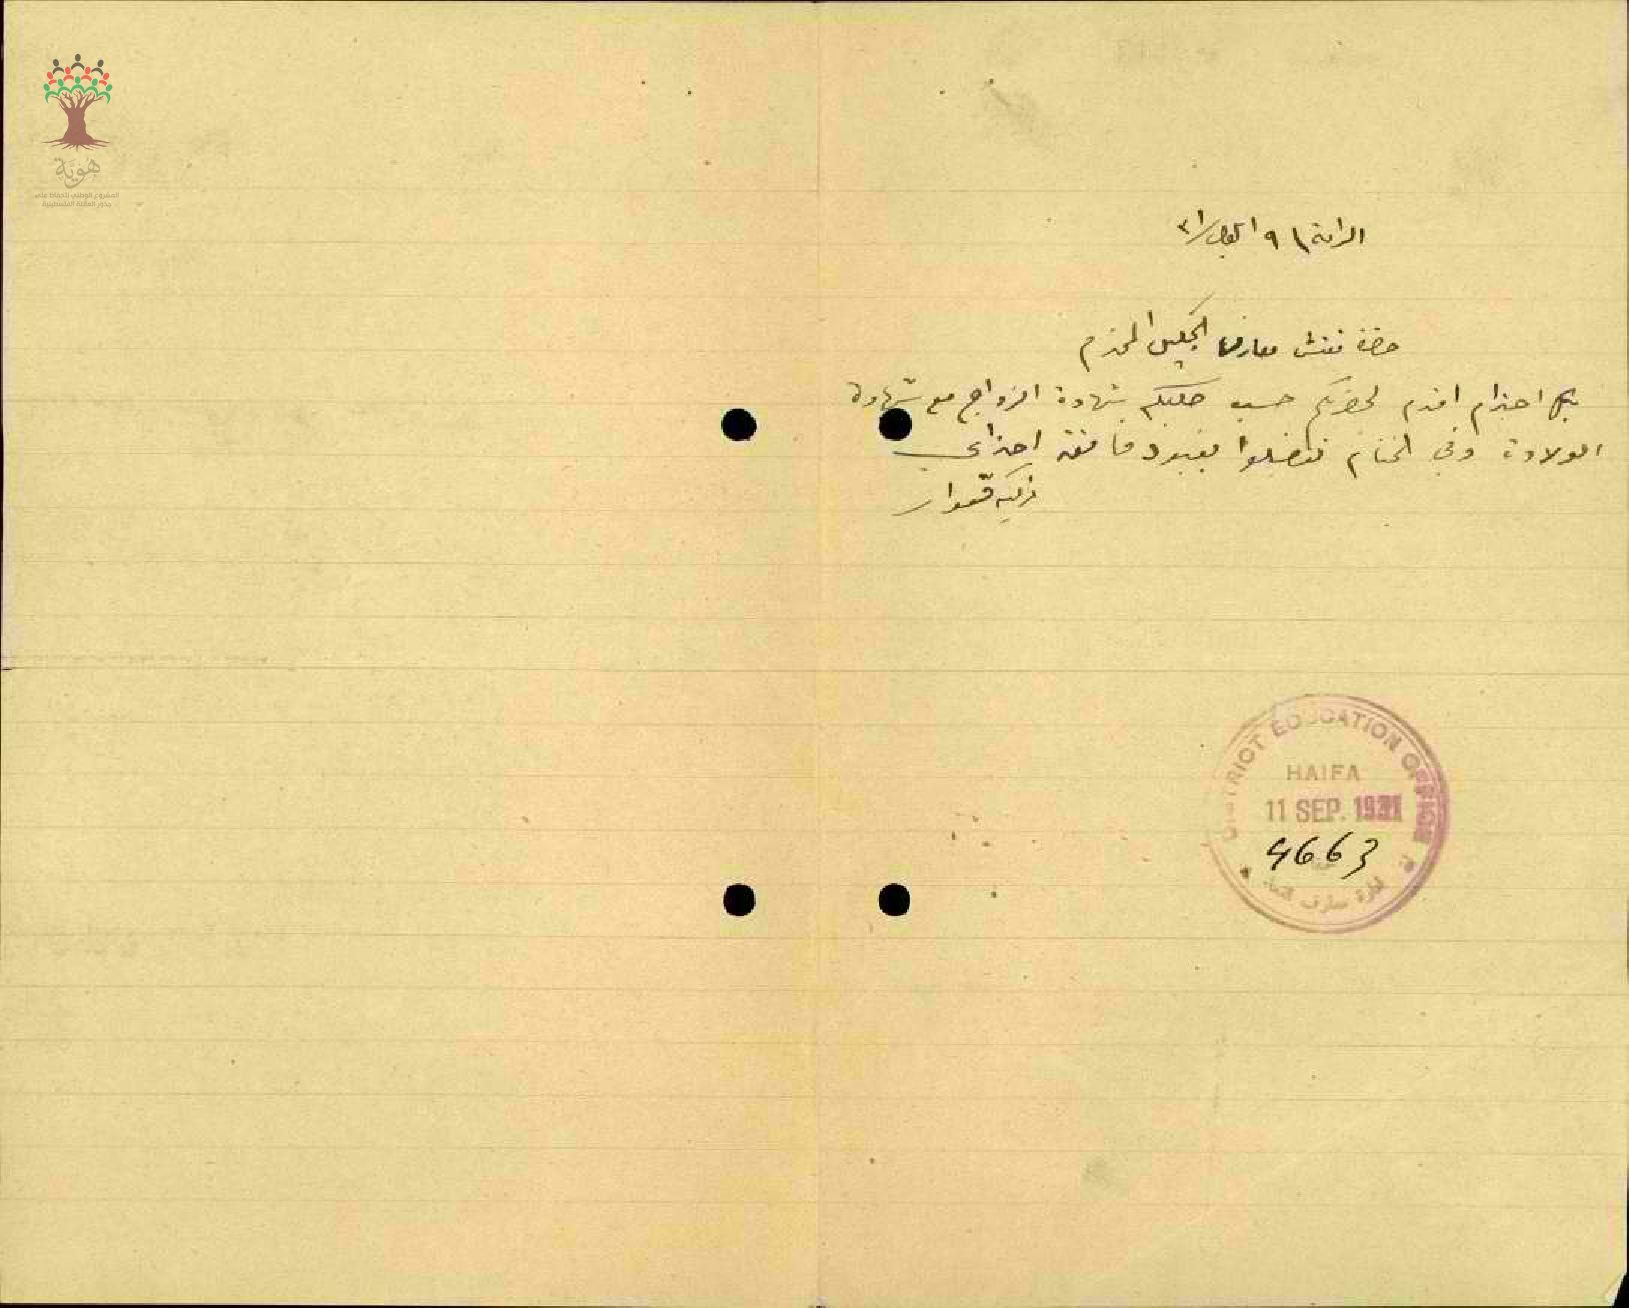 هوية
المشروع الوطني للحفاظ على
جذور العائلة الفلسطينية
الرامة ٩ ايلول ٣١
حضرة مفتش معارف الجليل المحترم
بكل احترام اقدم لحضرتكم حسب طلبكم شهادة الزواج مع شهادة
الولادة وفي الختام تفضلوا بقبول فائقة احترامي
زكيه قعوار
DISTRICT EDUCATION OFFICE
HAIFA
11 SEP. 1931
4663
ادارة معارف